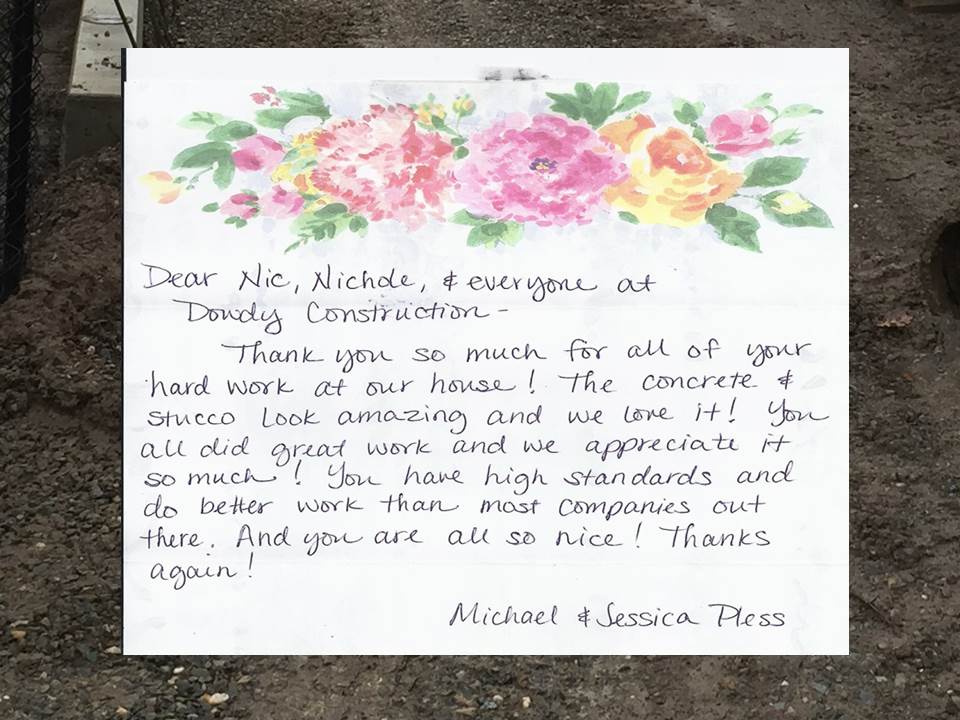 Dear Nic, Nichole, & everyone at
Dowdy Construction -
Thank you so much for all of your
hard work at our house! The concrete &
stucco look amazing and we love it! You
all did great work and we appreciate it
so much! You have high standards and
do better work than most companies out
there. And you are all so nice! Thanks
again!
Michael & Jessica Pless